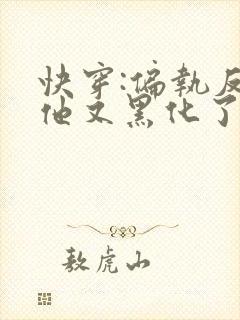 快穿:偏執反
他又黑化了
敖虎山